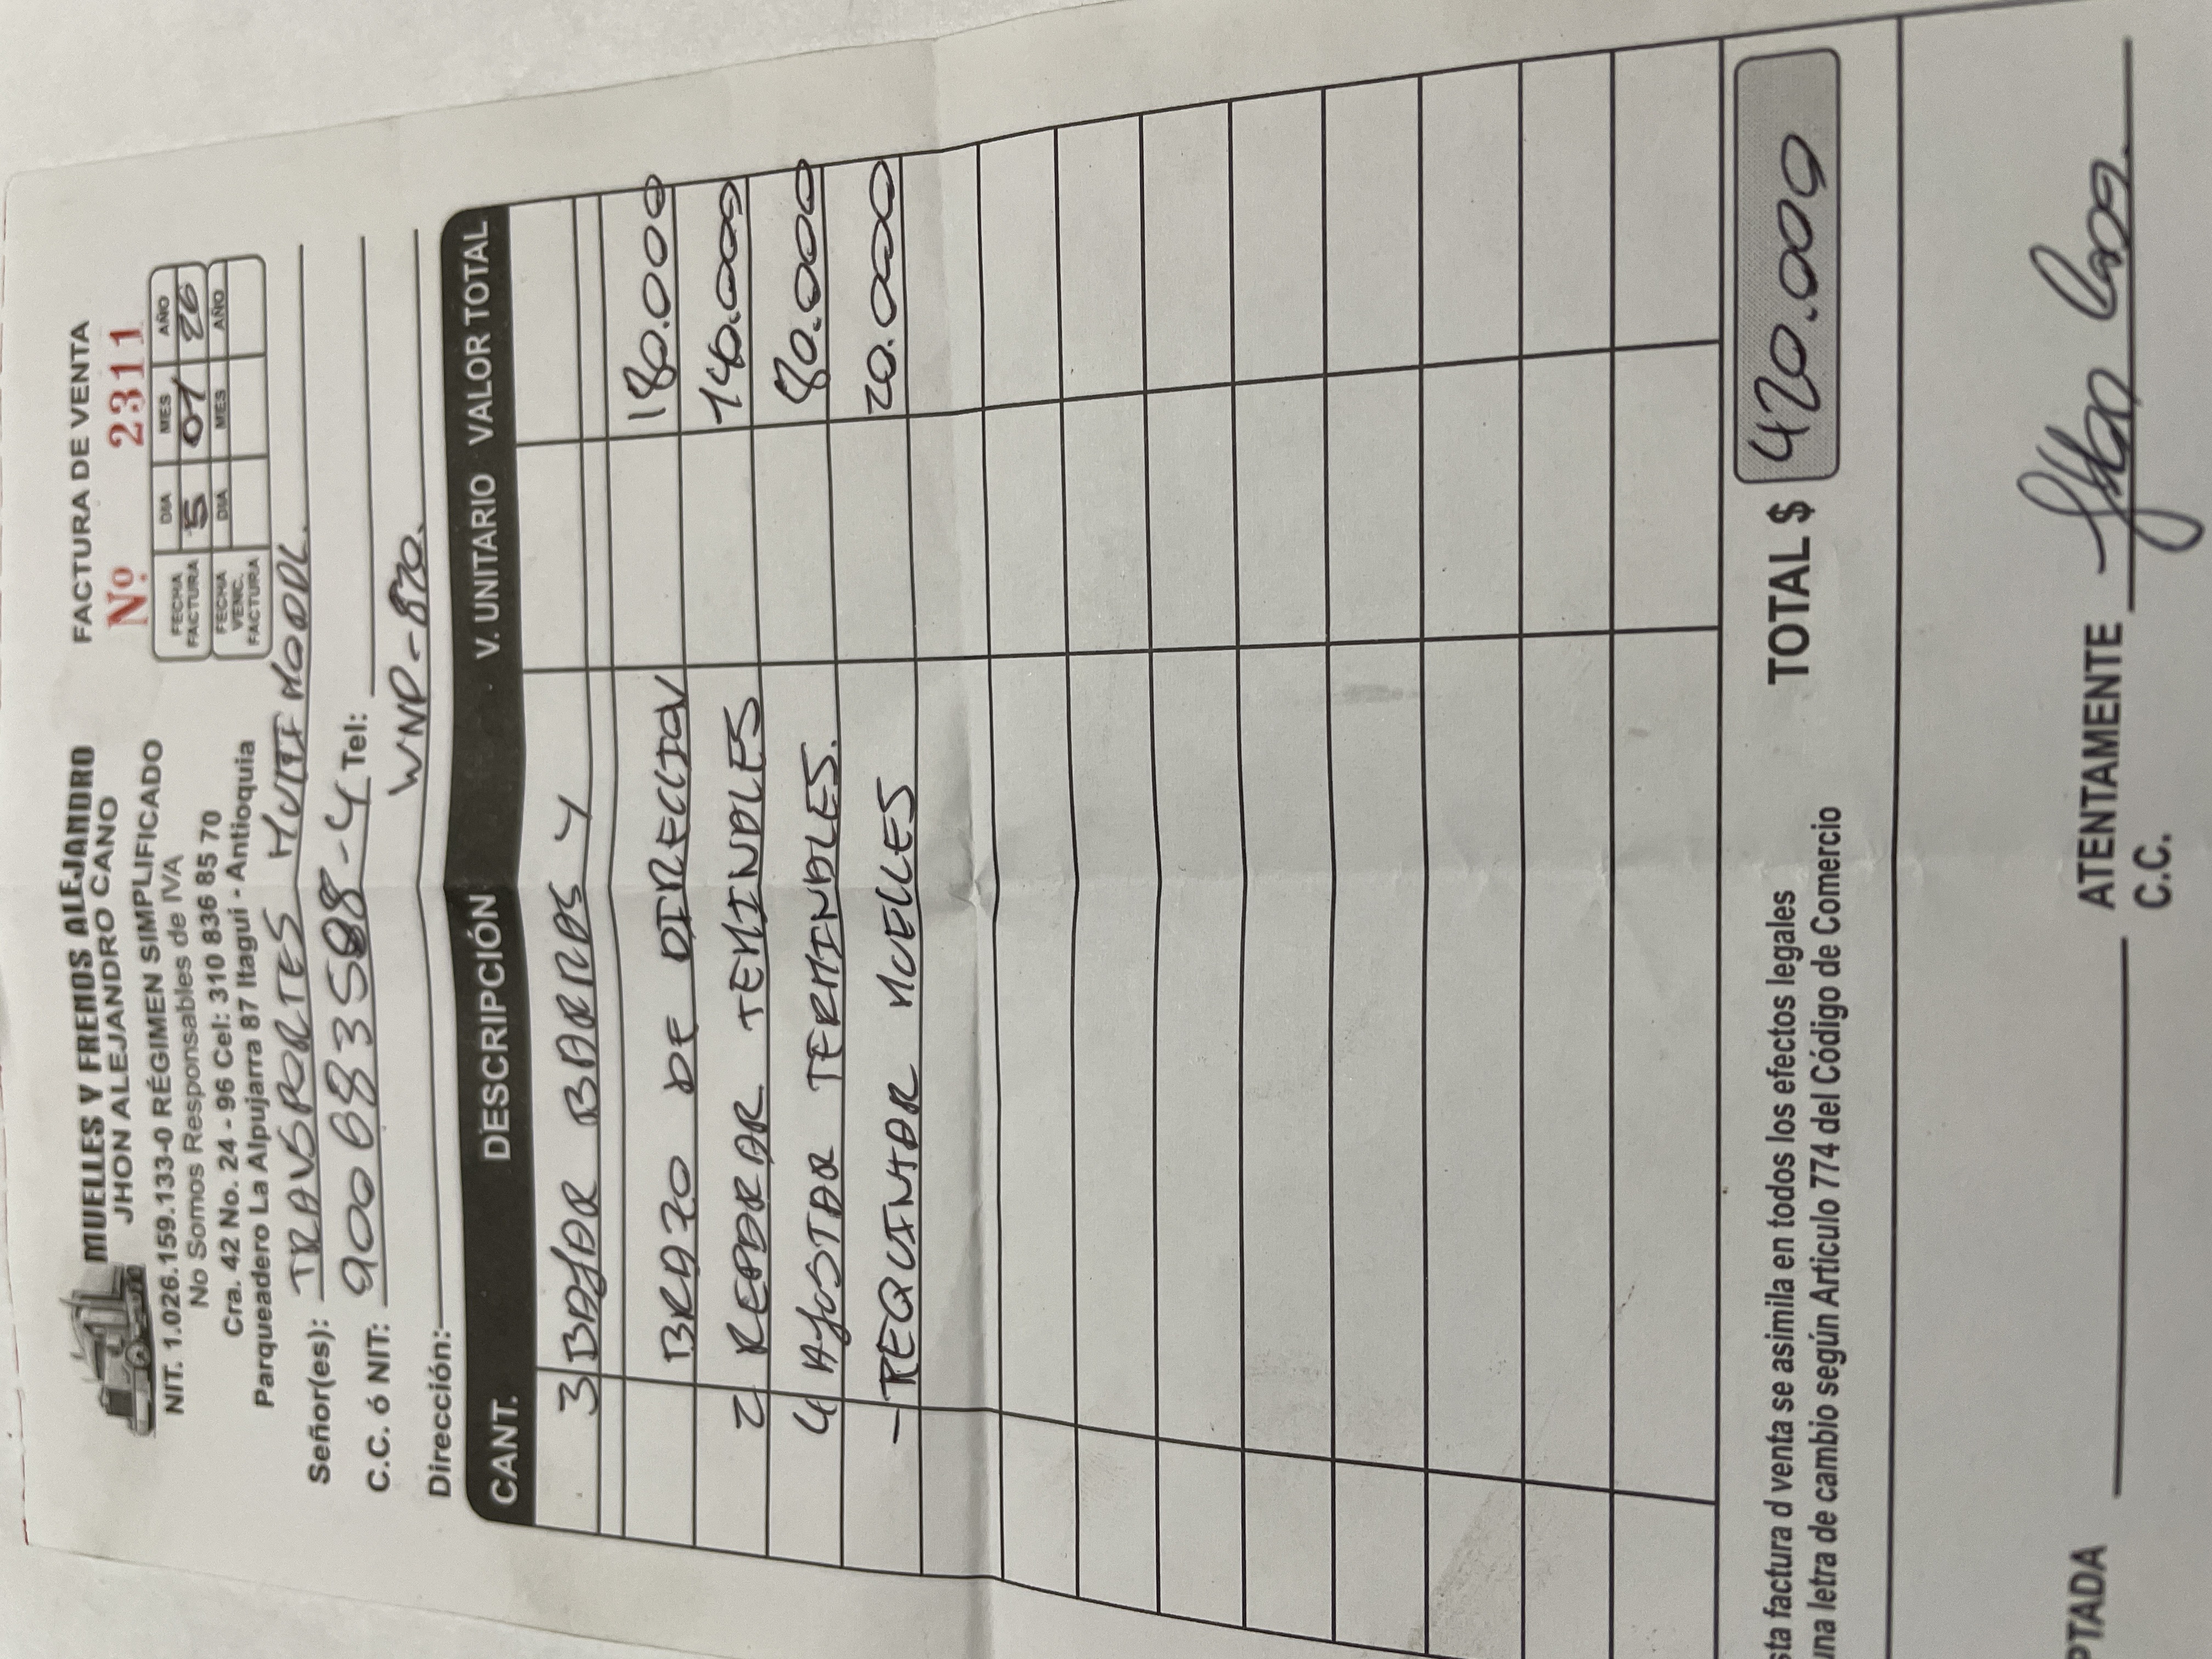 MUELLES Y FRENOS ALEJANDRO
JHON ALEJANDRO CANO
NIT. 1.026.159.133-0 RÉGIMEN SIMPLIFICADO
No Somos Responsables de IVA
Cra. 42 No. 24 - 96 Cel: 310 836 85 70
Parqueadero La Alpujarra 87 Itagui - Antioquia
FACTURA DE VENTA
Nº 2311
FECHA FACTURA DIA 5 MES 01 AÑO 26
FECHA VENC. FACTURA DIA MES AÑO
Señor(es): TRANSPORTES MULTIMODAL.
C.C. ó NIT: 900683588-4 Tel:
Dirección: WNP-870.
CANT. DESCRIPCIÓN V. UNITARIO VALOR TOTAL
3 BAJAR BARRAS Y
BRAZO DE DIRECCION 180.000
2 REPARAR TEMINALES 140.000
4 AJUSTAR TERMINALES. 80.000
- REQUINTAR MUELLES 20.000
sta factura d venta se asimila en todos los efectos legales
una letra de cambio según Articulo 774 del Código de Comercio
TOTAL $ 420.000
PTADA
ATENTAMENTE
C.C.